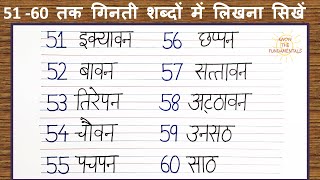 51 -60 तक गिनती शब्दों में लिखना सिखें
KNOW THE FUNDAMENTALS
51 इक्यावन 56 छप्पन
52 बावन 57 सत्तावन
53 तिरेपन 58 अट्ठावन
54 चौवन 59 उनसठ
55 पचपन 60 साठ